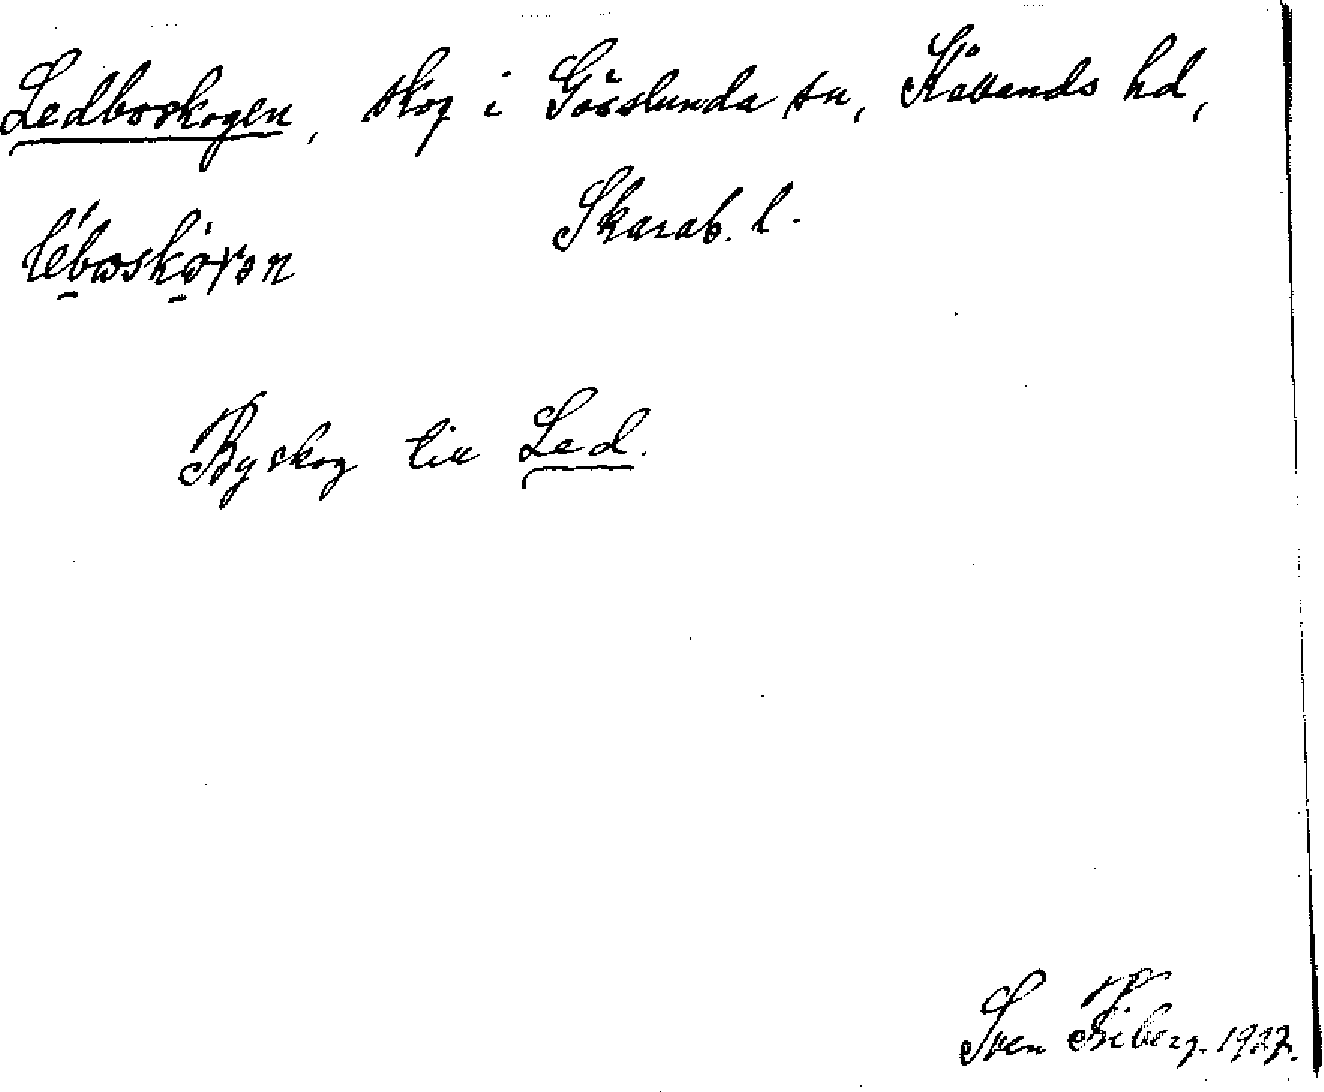 Ledboskogen, skog i Gösslunda sn, Kållands hd,
Skarab. l.
Byskog till Led.
Sven Fiberg. 1927.